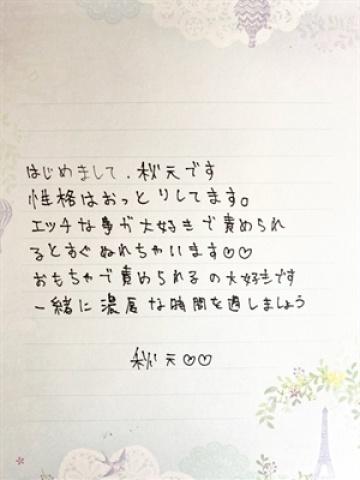 はじめまして、秋元です
性格はおっとりしてます。
エッチな事が大好きで責められ
るとすぐぬれちゃいます♡♡
おもちゃで責められるの大好きです
一緒に濃厚な時間を過しましょう
秋元♡♡